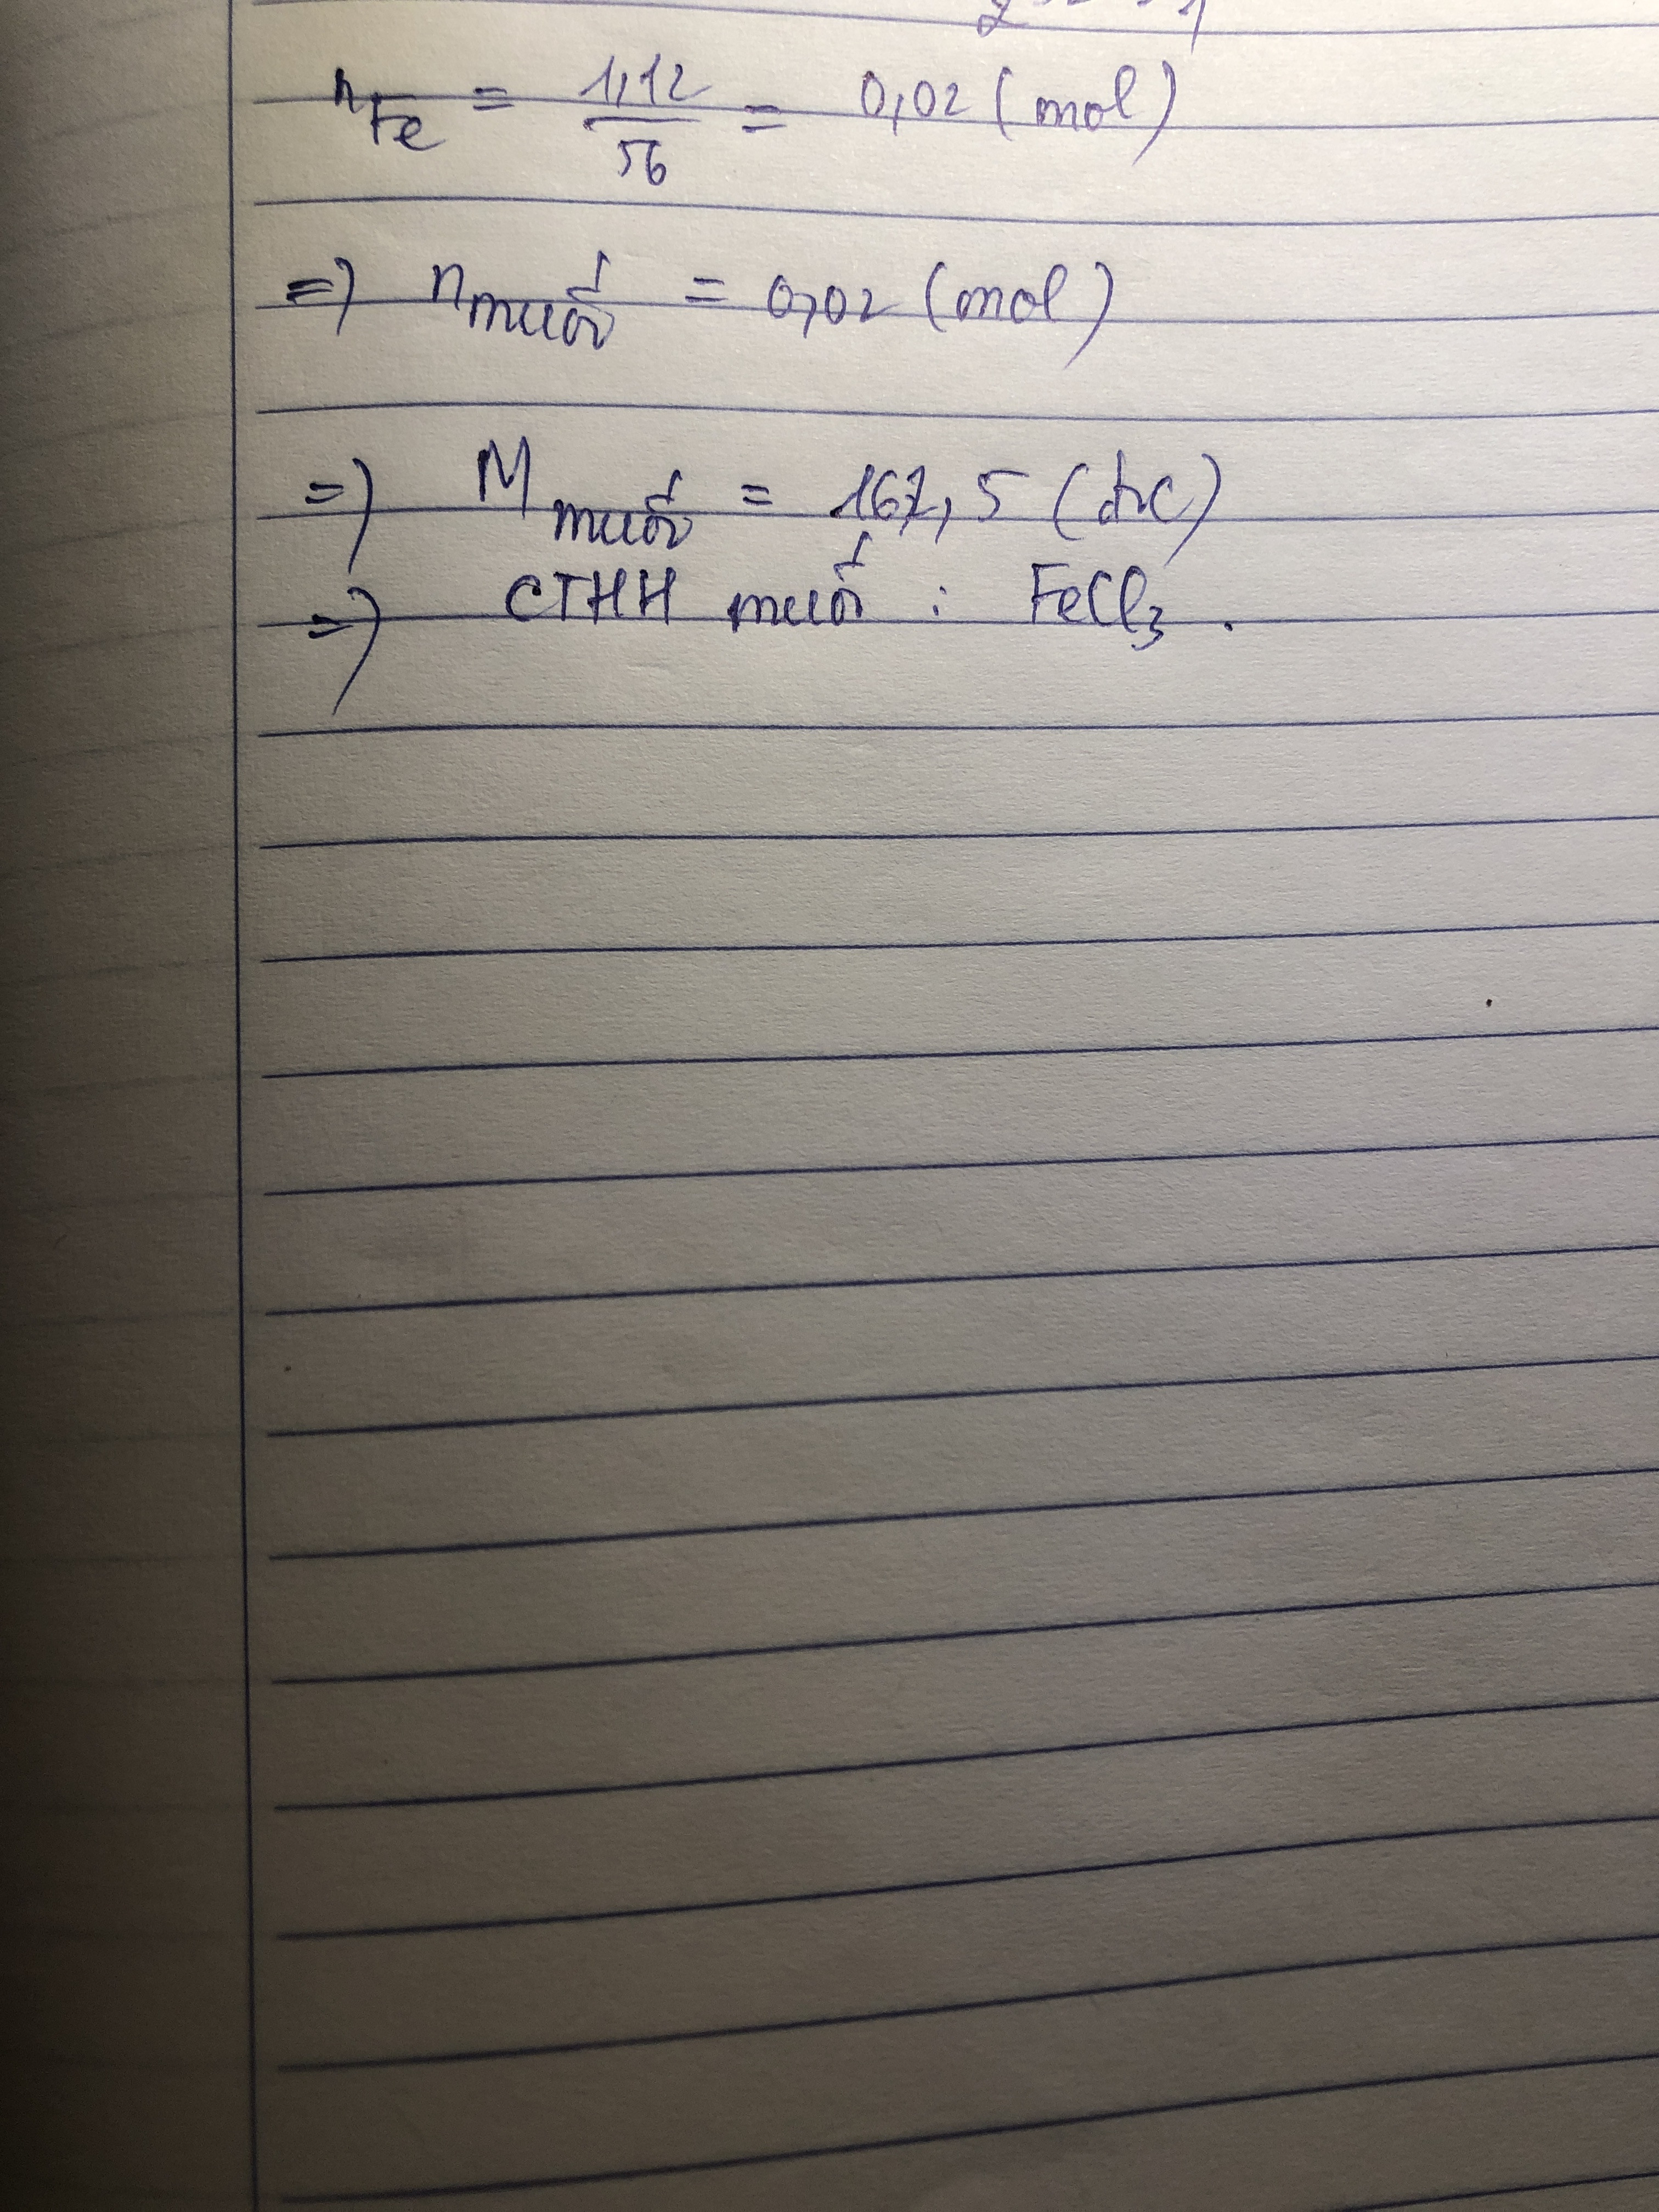 n Fe = 1,12 / 56 = 0,02 (mol)
=) n muối = 0,02 (mol)
=) M muối = 162,5 (đvC)
=) CTHH muối : FeCl3 .